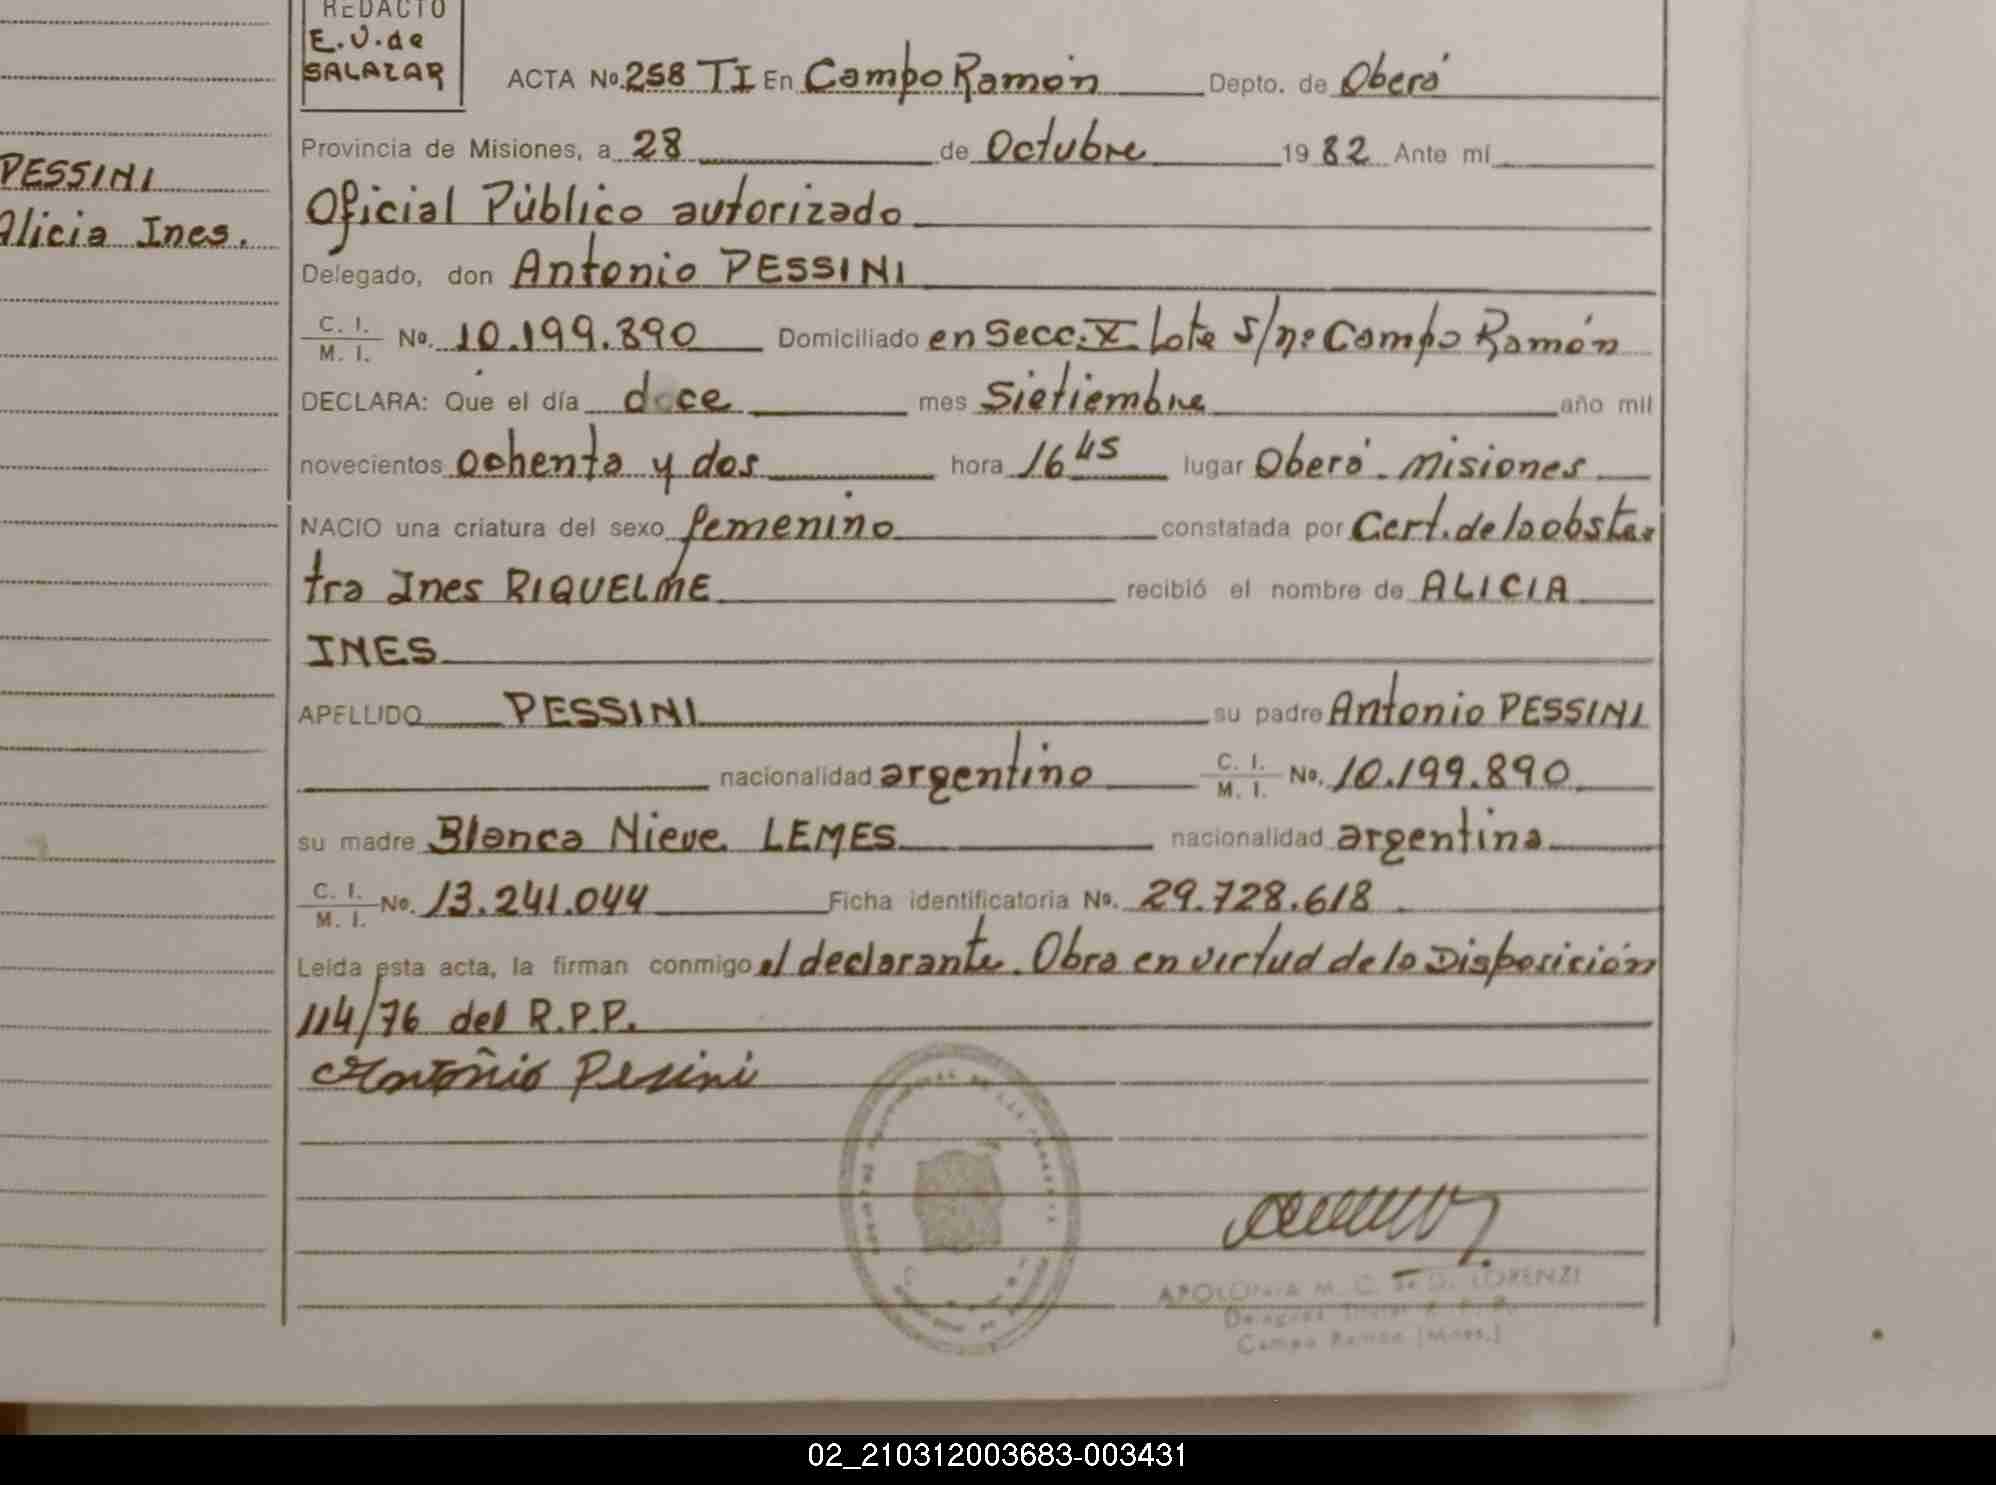 REDACTO
E.V. de
SALAZAR
PESSINI
Alicia Ines.
ACTA No. 258 TI En Campo Ramón Depto. de Oberá
Provincia de Misiones, a 28 de Octubre 1982 Ante mí
Oficial Público autorizado
Delegado, don Antonio PESSINI
C. I. M. I. No. 10.199.890 Domiciliado en Secc. X Lote S/nº Campo Ramón
DECLARA: Que el día doce mes Sietiembre año mil
novecientos ochenta y dos hora 16 45 lugar Oberá - Misiones
NACIO una criatura del sexo femenino constatada por Cert. de la obste
tra Ines RIQUELME recibió el nombre de ALICIA
INES
APELLIDO PESSINI su padre Antonio PESSINI
nacionalidad argentino C. I. M. I. No. 10.199.890
su madre Blanca Nieve LEMES nacionalidad argentina
C. I. M. I. No. 13.241.044 Ficha identificatoria No. 29.728.618
Leída esta acta, la firman conmigo el declarante. Obra en virtud de la Disposición
114/76 del R.P.P.
Antonio Pesini
APOLONIA M. C. LORENZI
Campo Ramón (Mnes.)
02_210312003683-003431